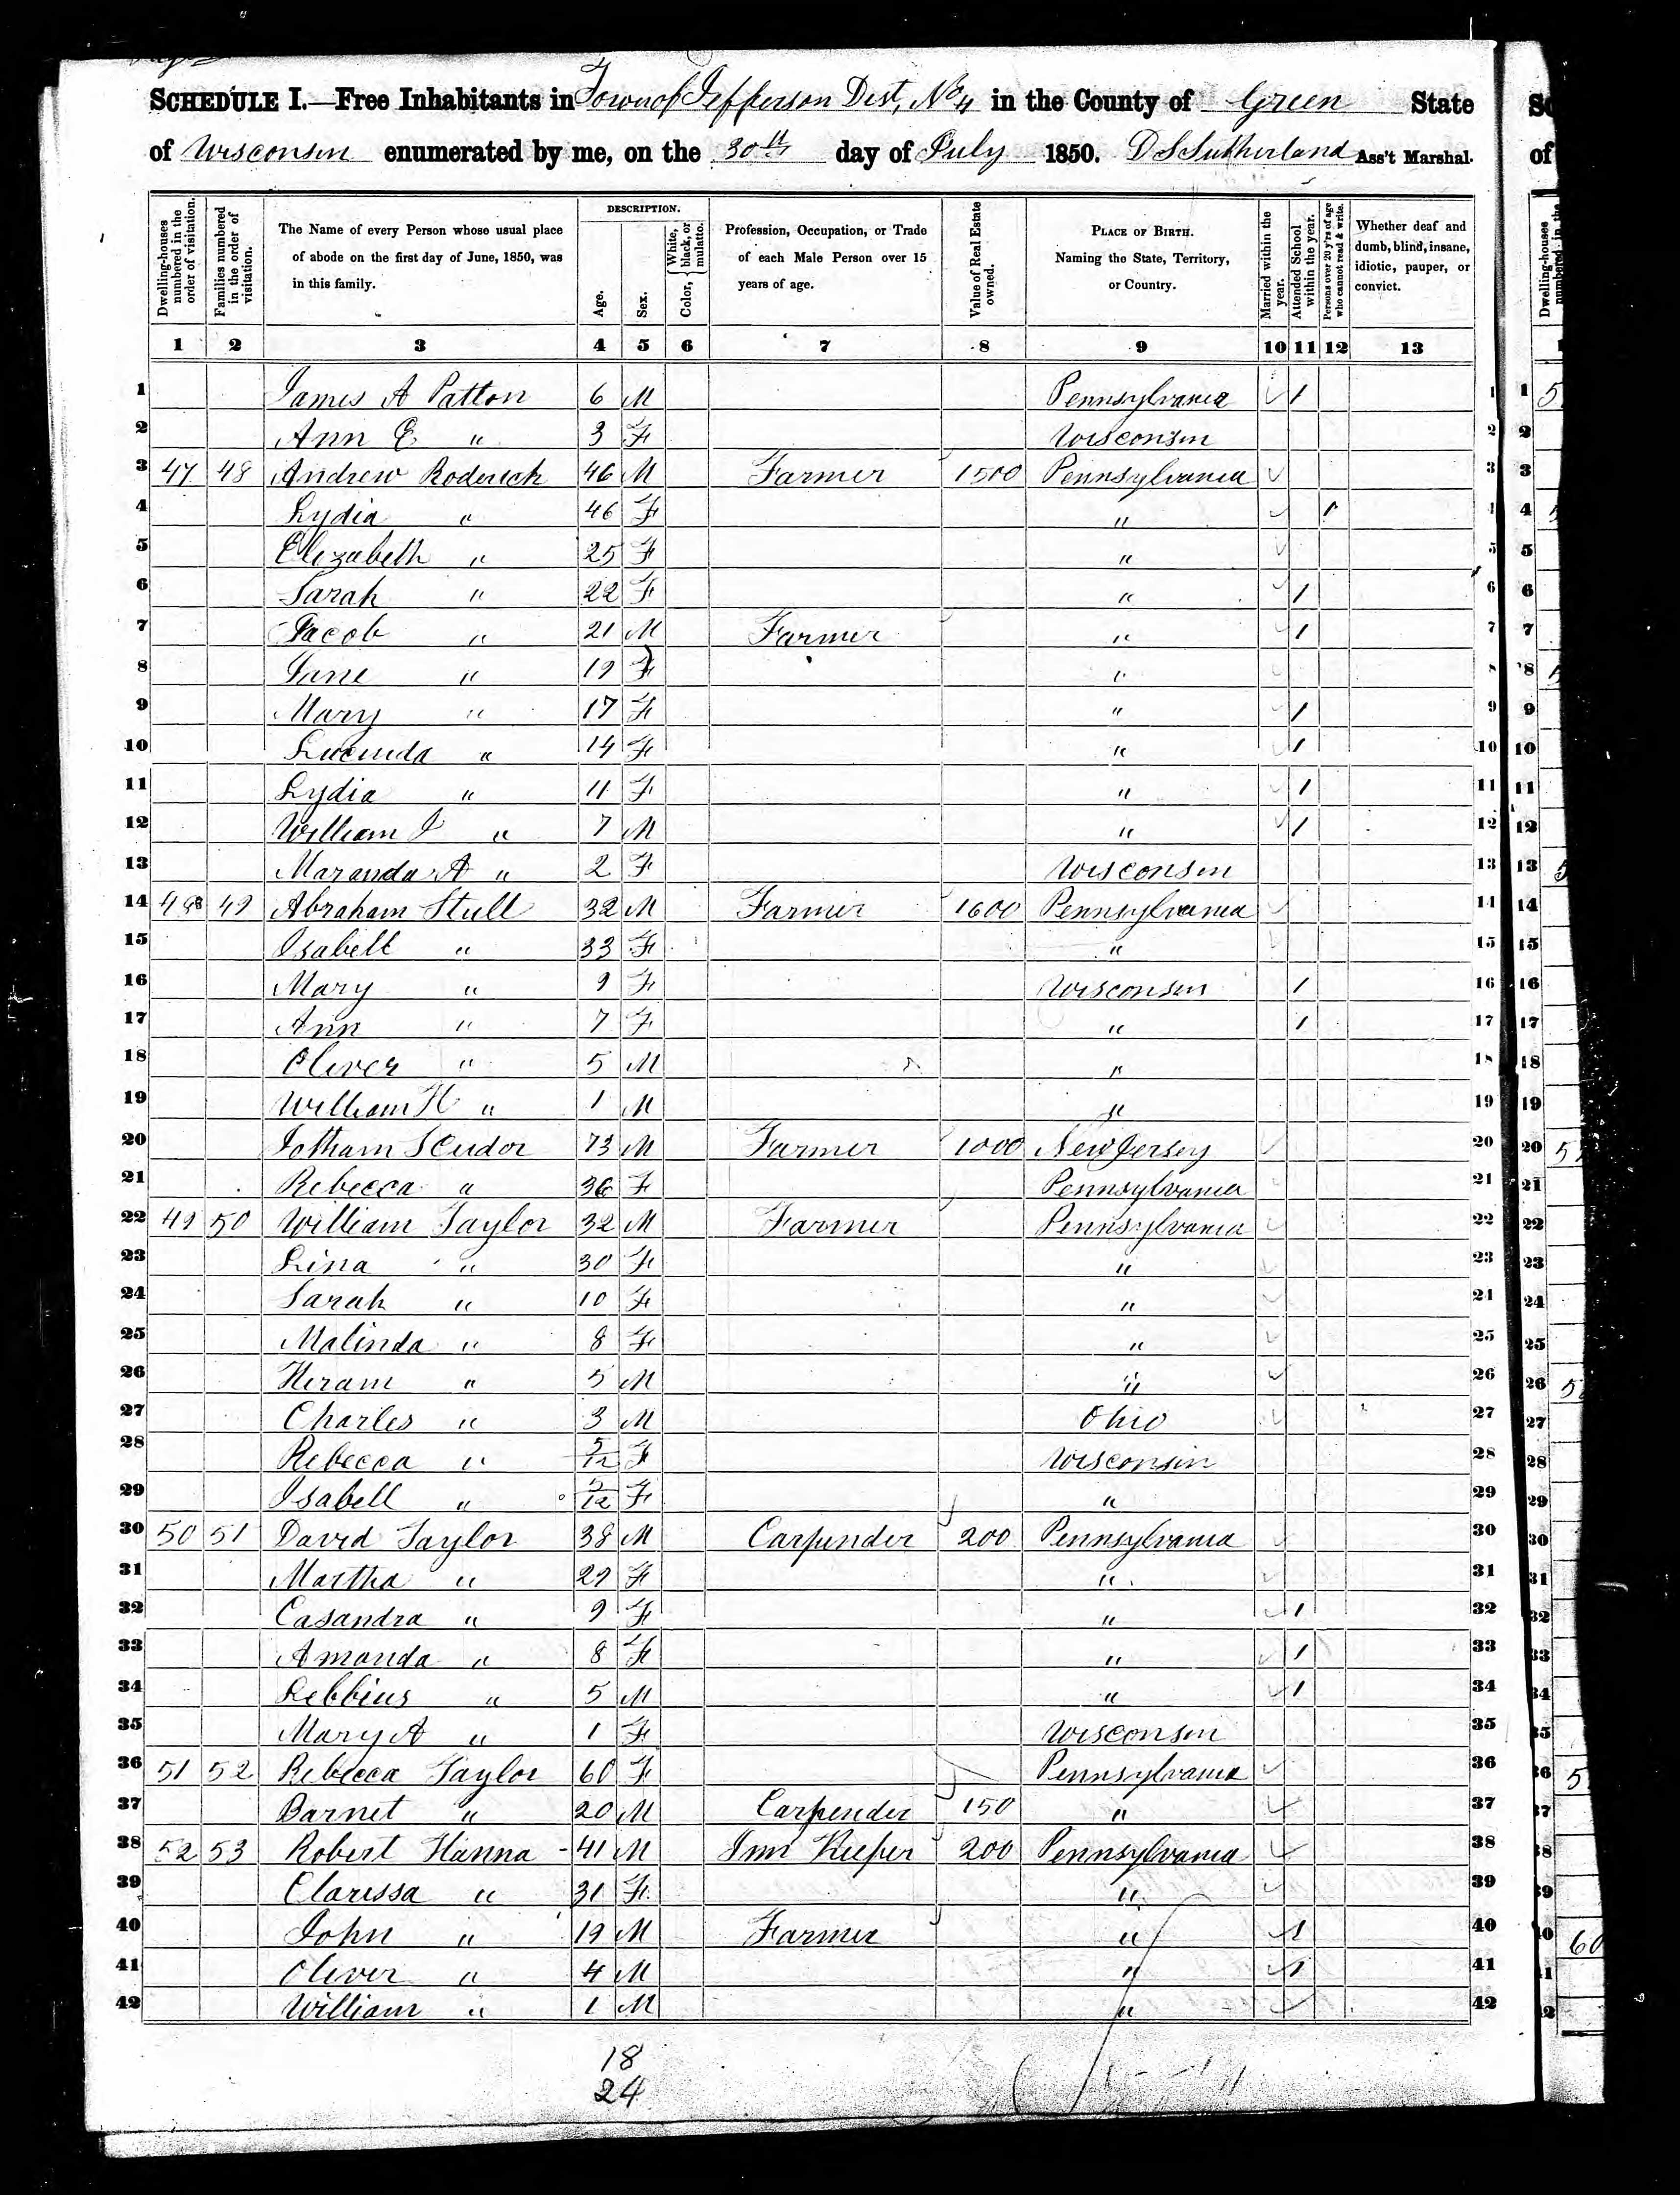 SCHEDULE I.—Free Inhabitants in Town of Jefferson Dist, No 4 in the County of Green State
of Wisconsin enumerated by me, on the 30th day of July 1850. D S Sutherland Ass't Marshal.
Dwelling-houses numbered in the order of visitation.
Families numbered in the order of visitation.
The Name of every Person whose usual place of abode on the first day of June, 1850, was in this family.
DESCRIPTION.
Age.
Sex.
Color, { White, black, or mulatto.
Profession, Occupation, or Trade of each Male Person over 15 years of age.
Value of Real Estate owned.
PLACE OF BIRTH. Naming the State, Territory, or Country.
Married within the year.
Attended School within the year.
Persons over 20 y'rs of age who cannot read & write.
Whether deaf and dumb, blind, insane, idiotic, pauper, or convict.
1 2 3 4 5 6 7 8 9 10 11 12 13
1 James A Patton 6 M Pennsylvania 1 1
2 Ann E " 3 F Wisconsin 2
3 47 48 Andrew Roderick 46 M Farmer 1500 Pennsylvania 3
4 Lydia " 46 F " 1 4
5 Elizabeth " 25 F " 5
6 Sarah " 22 F " 1 6
7 Jacob " 21 M Farmer " 1 7
8 Jane " 19 F " 8
9 Mary " 17 F " 1 9
10 Lucinda " 14 F " 1 10
11 Lydia " 11 F " 1 11
12 William J " 7 M " 1 12
13 Maranda A " 2 F Wisconsin 13
14 48 49 Abraham Stull 32 M Farmer 1600 Pennsylvania 14
15 Isabell " 33 F " 15
16 Mary " 9 F Wisconsin 1 16
17 Ann " 7 F " 1 17
18 Oliver " 5 M " 18
19 William H " 1 M " 19
20 Jotham Scudor 73 M Farmer 1000 New Jersey 20
21 Rebecca " 36 F Pennsylvania 21
22 49 50 William Taylor 32 M Farmer Pennsylvania 22
23 Lina " 30 F " 23
24 Sarah " 10 F " 24
25 Malinda " 8 F " 25
26 Hiram " 5 M " 26
27 Charles " 3 M Ohio 27
28 Rebecca " 5/12 F Wisconsin 28
29 Isabell " 5/12 F " 29
30 50 51 David Taylor 38 M Carpender 200 Pennsylvania 30
31 Martha " 29 F " 31
32 Casandra " 9 F " 1 32
33 Amanda " 8 F " 1 33
34 Lebbius " 5 M " 1 34
35 Mary A " 1 F Wisconsin 35
36 51 52 Rebecca Taylor 60 F Pennsylvania 36
37 Barnet " 20 M Carpender 150 " 37
38 52 53 Robert Hanna 41 M Inn Keeper 200 Pennsylvania 38
39 Clarissa " 31 F " 39
40 John " 19 M Farmer " 1 40
41 Oliver " 4 M " 1 41
42 William " 1 M " 42
18
24